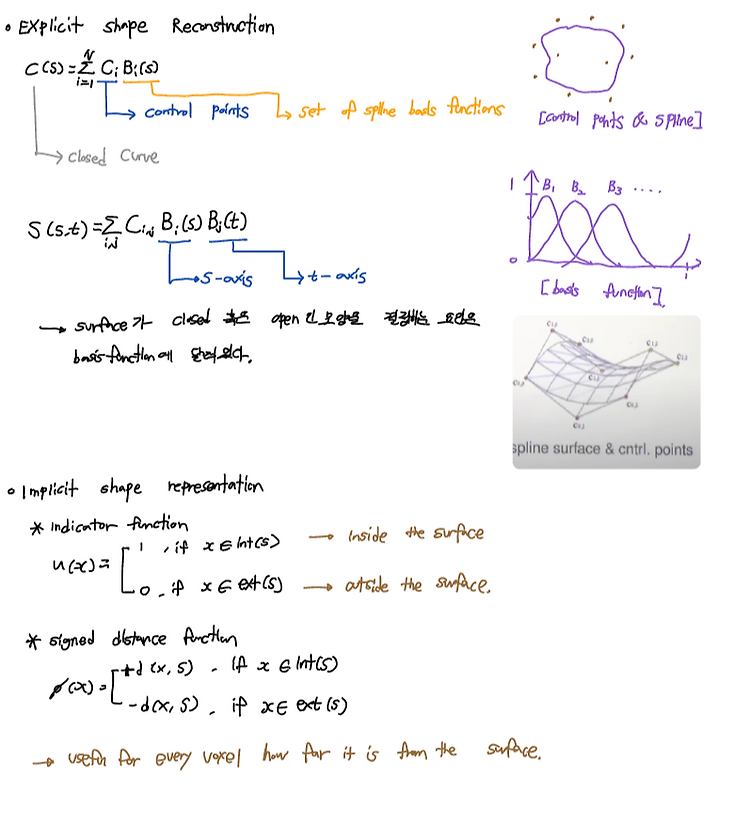 • EXplicit shape Reconstruction
C(s) = Σ_{i=1}^{N} C_i B_i(s)
↳ control points
↳ set of spline basis functions
→ closed curve
[control points & spline]
S(s,t) = Σ_{i,j} C_{i,j} B_i(s) B_j(t)
↳ s-axis
↳ t-axis
1 B₁ B₂ B₃ ....
0 1
[basis function]
→ surface가 closed 혹은 open 인 모양을 결정하는 요인은
basis function에 달려있다.
spline surface & cntrl. points
• Implicit shape representation
* Indicator function
u(x) = [ 1 , if x ∈ Int(s) → Inside the surface
0 , if x ∈ ext(s) → outside the surface.
* signed distance function
φ(x) = [ +d(x, S) , if x ∈ Int(s)
-d(x, S) , if x ∈ ext(s)
→ useful for every voxel how far it is from the surface.